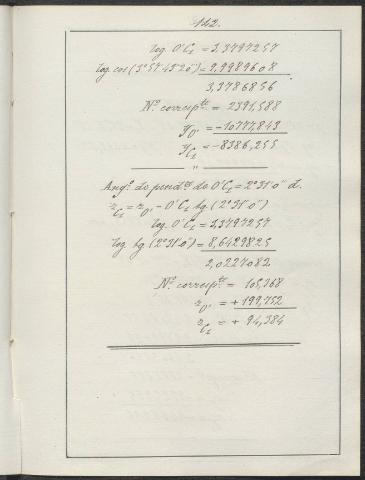 142.
log. O'C₁ = 3,3797257
log. cos (3°57'45"20‴) = 9,9989608
3,3786856
Nº. corresp.te = 2391,588
y O' = -10777,843
y C₁ = -8386,255
"
Ang.º de pend.te de O'C₁ = 2°31'0" d.
z C₁ = z O' - O'C₁ tg (2°31'0")
log. O'C₁ = 3,3797257
log. tg (2°31'0") = 8,6429825
2,0227082
Nº. corresp.te = 105,368
z O' = + 199,752
z C₁ = + 94,384